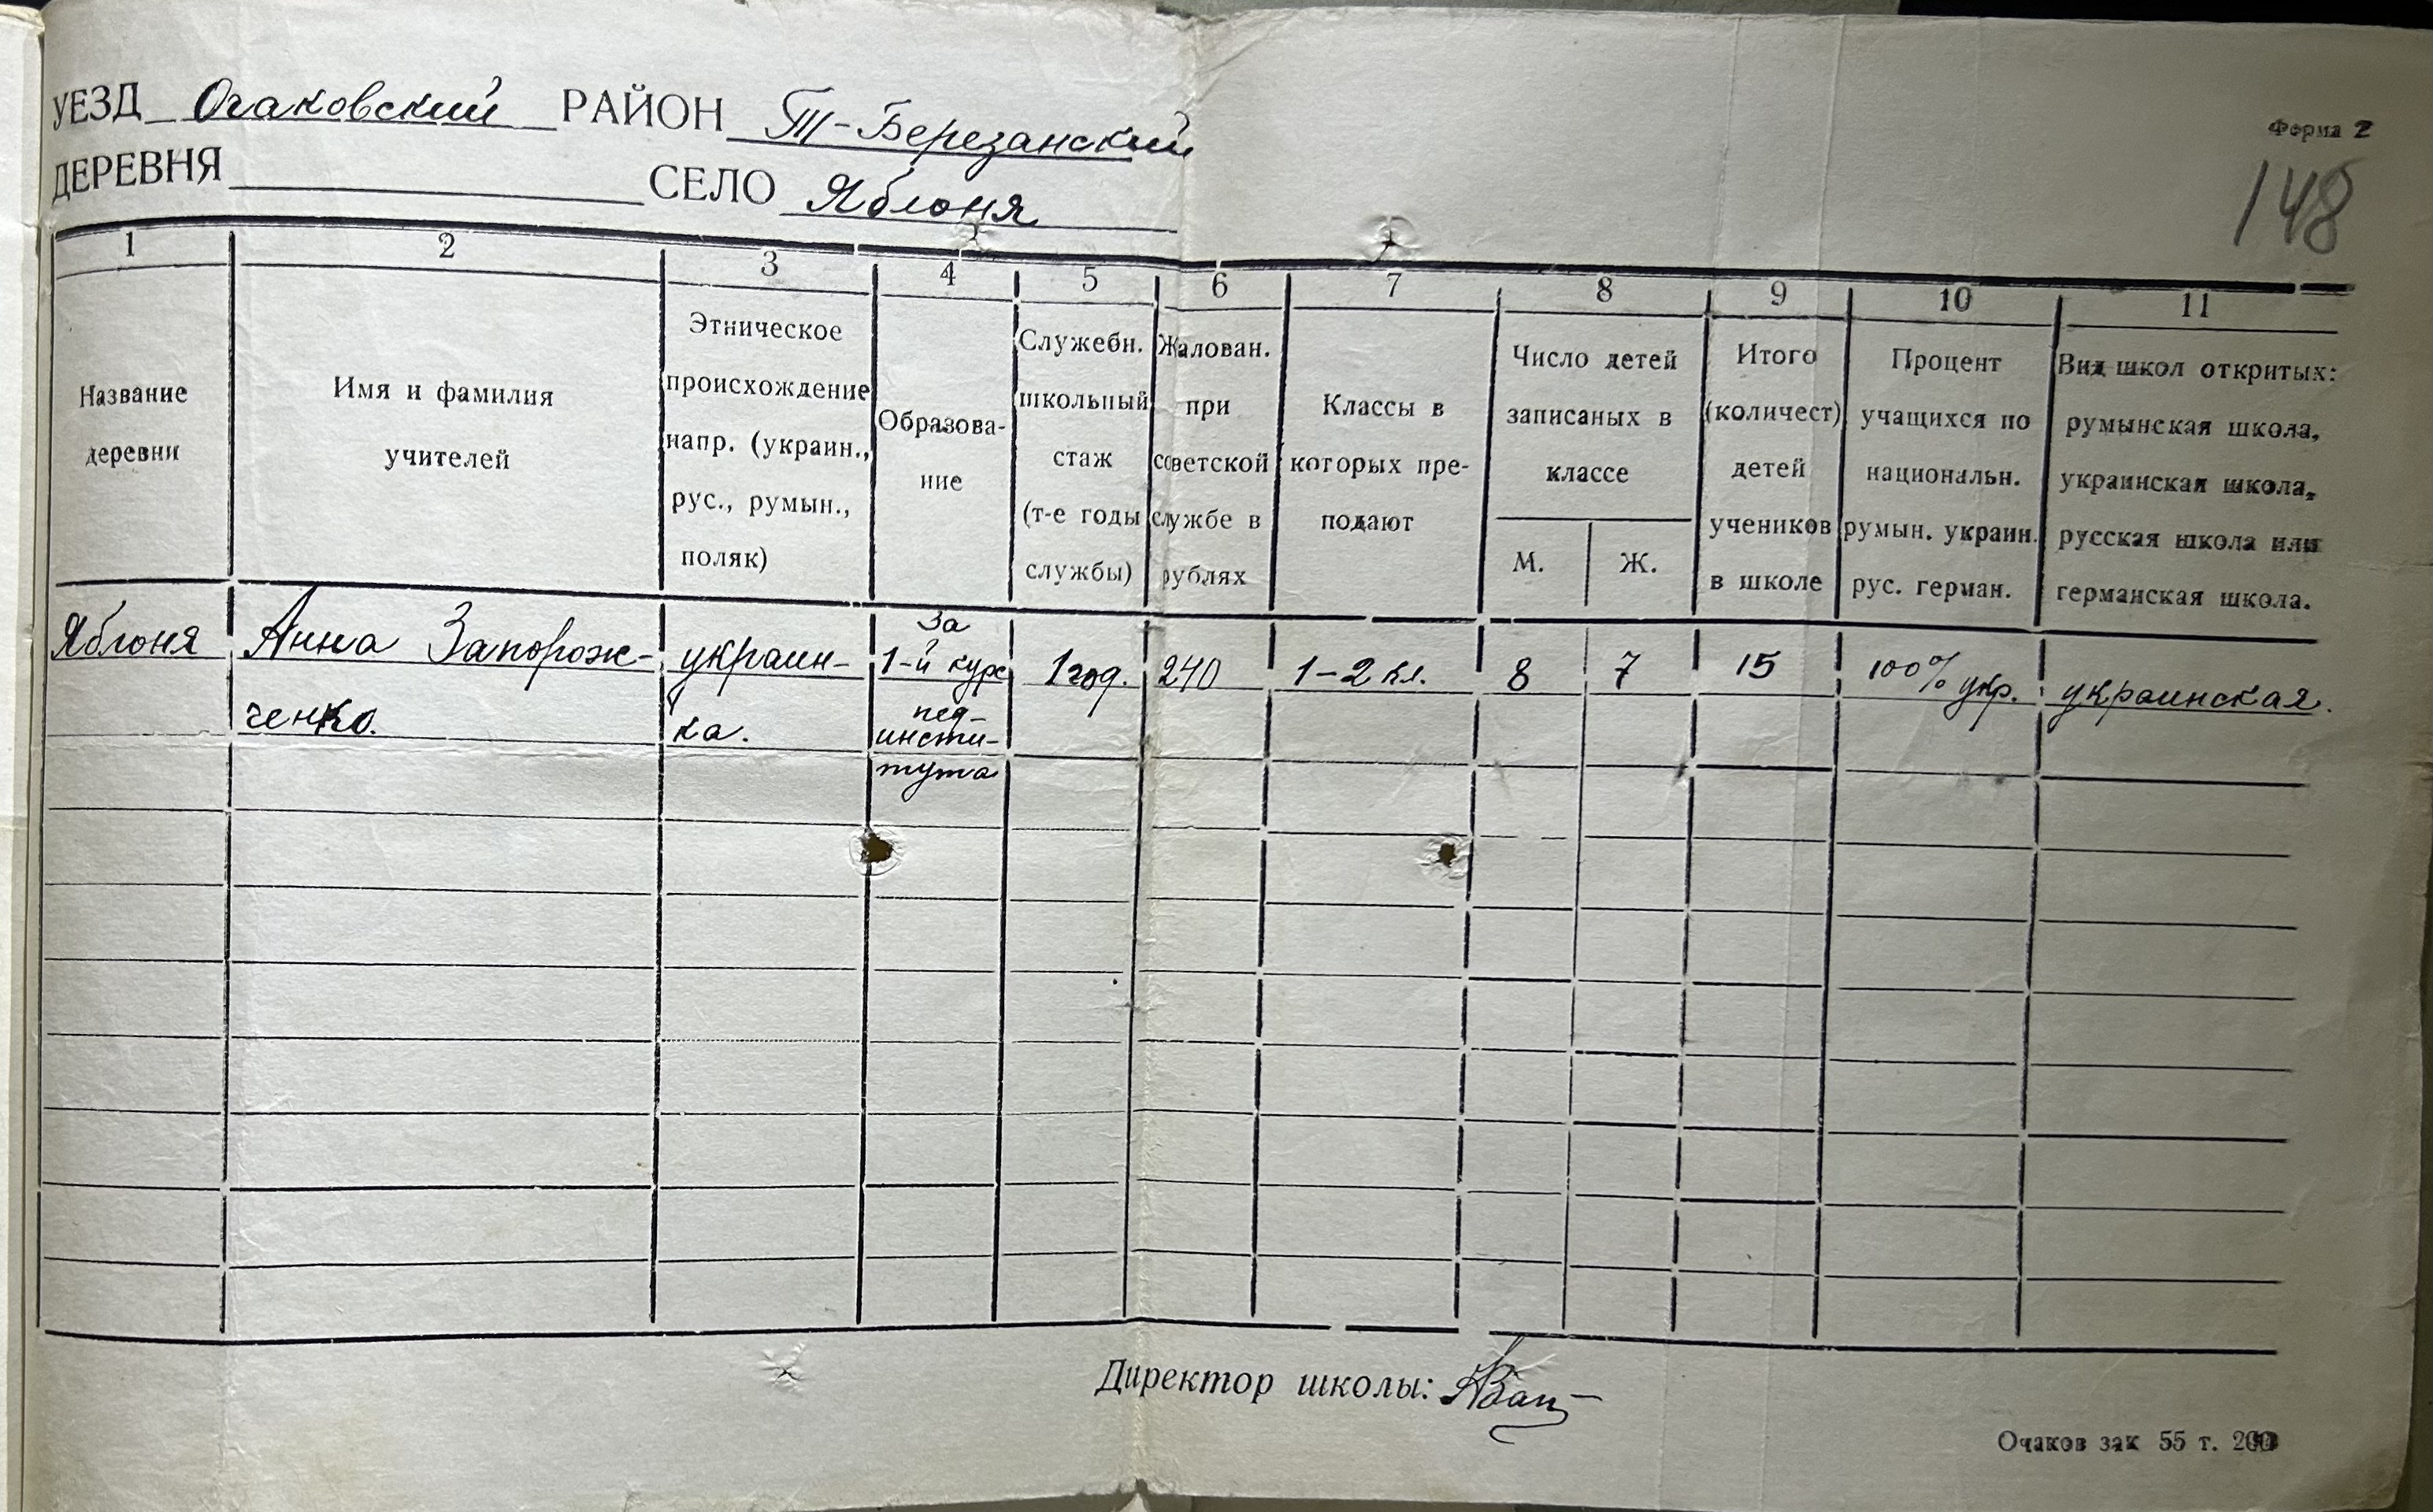 УЕЗД Очаковский РАЙОН Т-Березанский
Форма 2
ДЕРЕВНЯ СЕЛО Яблоня
148
1 2 3 4 5 6 7 8 9 10 11
Название
деревни
Имя и фамилия
учителей
Этническое
происхождение
напр. (украин.,
рус., румын.,
поляк)
Образова-
ние
Служебн.
школьный
стаж
(т-е годы
службы)
Жалован.
при
советской
службе в
рублях
Классы в
которых пре-
подают
Число детей
записаных в
классе
М. Ж.
Итого
(количест)
детей
учеников
в школе
Процент
учащихся по
национальн.
румын. украин.
рус. герман.
Вид школ откритых:
румынская школа,
украинская школа,
русская школа или
германская школа.
Яблоня
Анна Запорож-
ченко.
украин-
ка.
За
1-й курс
пед-
инсти-
тута
1 год.
240
1-2 кл.
8
7
15
100% укр.
украинская.
Директор школы:
Очаков зак 55 т.